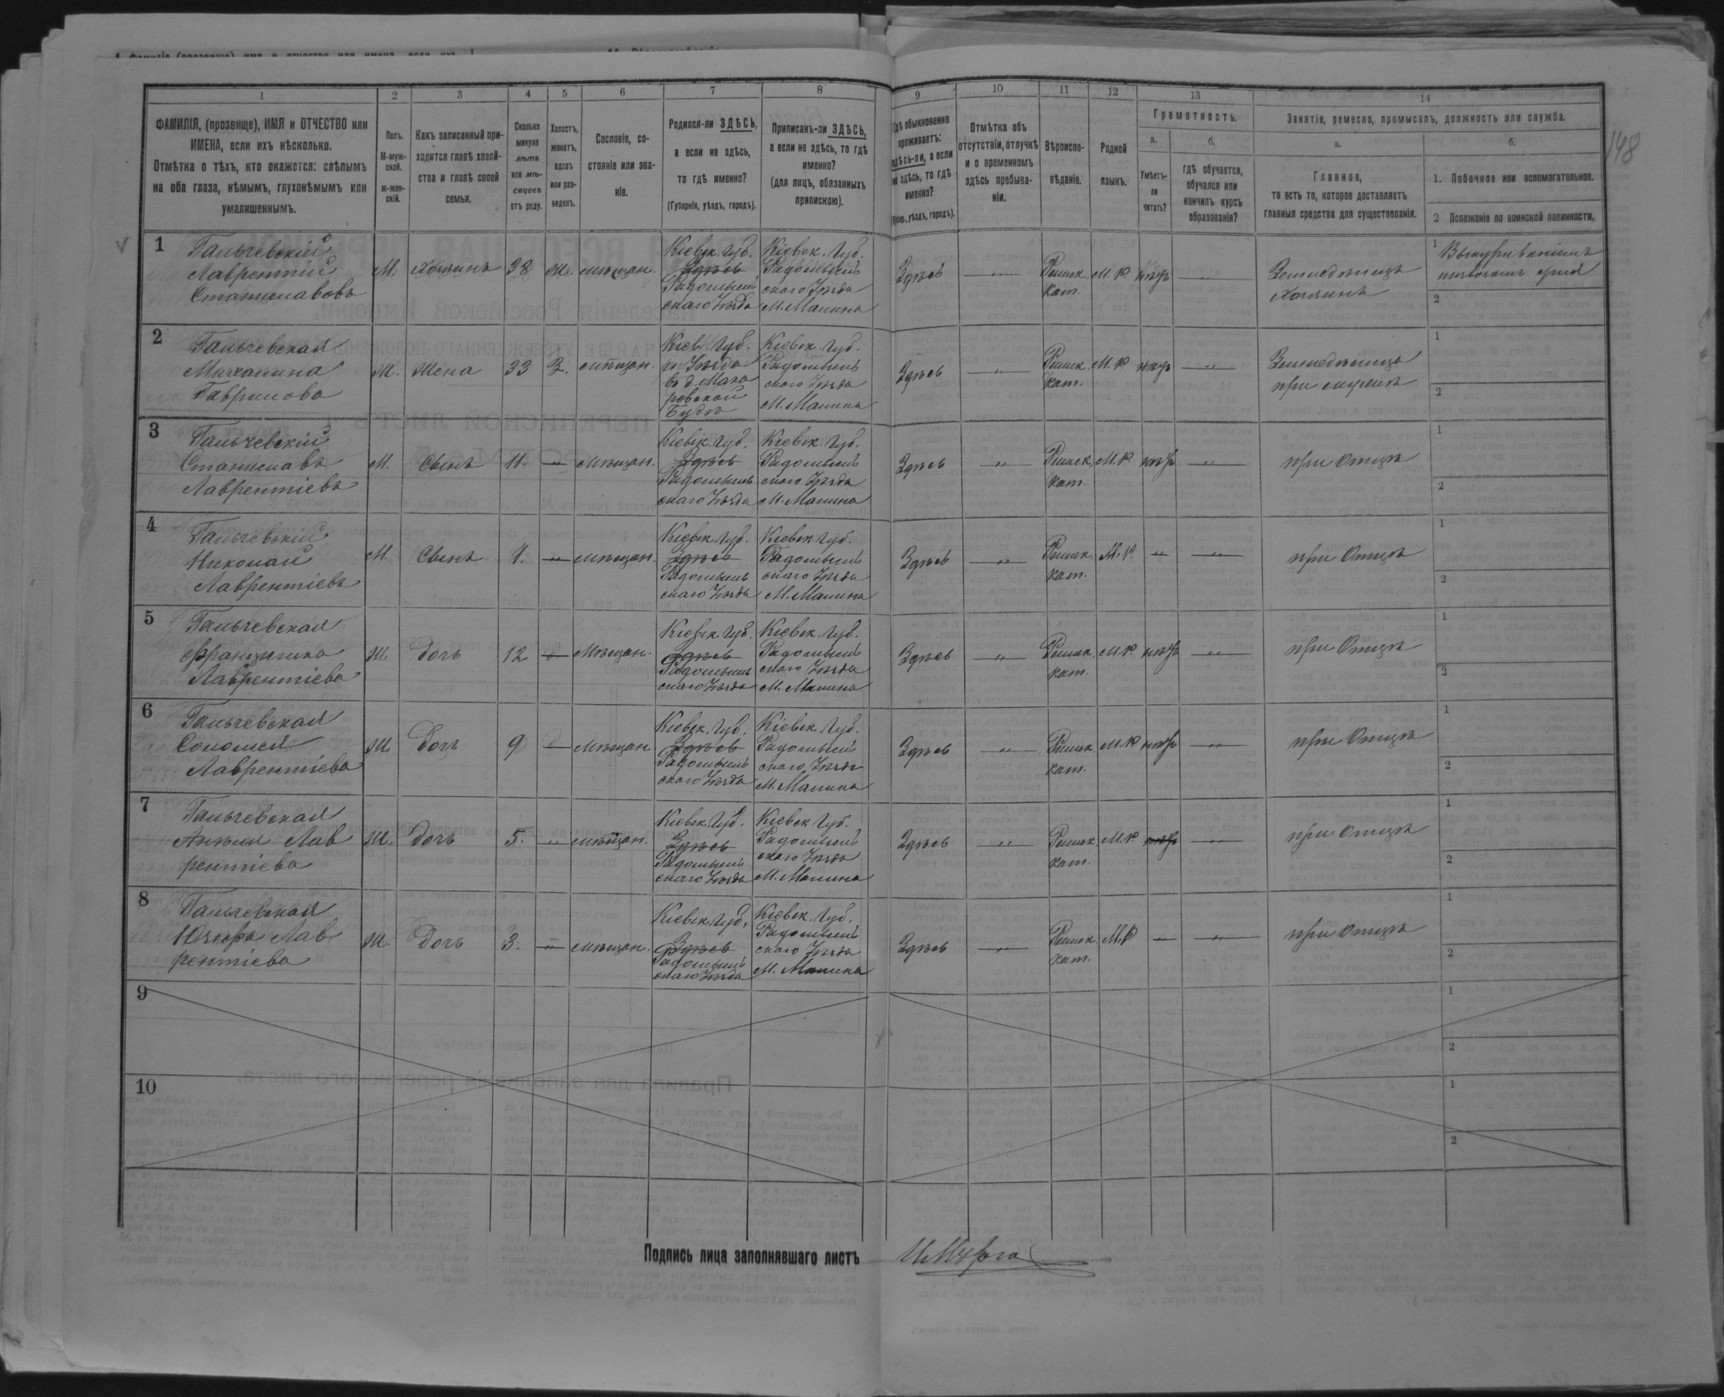 148
1 2 3 4 5 6 7 8 9 10 11 12 13 14
ФАМИЛІЯ, (прозвище), ИМЯ и ОТЧЕСТВО или
ИМЕНА, если ихъ нѣсколько.
Отмѣтка о тѣхъ, кто окажется: слѣпымъ
на оба глаза, нѣмымъ, глухонѣмымъ или
умалишеннымъ.
Полъ.
М-муж-
ской.
ж-жен-
скій.
Какъ записанный при-
ходится главѣ хозяй-
ства и главѣ своей
семьи.
Сколько
минуло
лѣтъ
или мѣ-
сяцевъ
отъ роду.
Холостъ,
женатъ,
вдовъ
или раз-
веденъ.
Сословіе, со-
стояніе или зва-
ніе.
Родился-ли ЗДѢСЬ,
а если не здѣсь,
то гдѣ именно?
(Губернія, уѣздъ, городъ).
Приписанъ-ли ЗДѢСЬ,
а если не здѣсь, то гдѣ
именно?
(для лицъ, обязанныхъ
припискою).
Гдѣ обыкновенно
проживаетъ:
здѣсь-ли, а если
не здѣсь, то гдѣ
именно?
(Губер., уѣздъ, городъ).
Отмѣтка объ
отсутствіи, отлучкѣ
и о временномъ
здѣсь пребыва-
ніи.
Вѣроиспо-
вѣданіе.
Родной
языкъ.
Грамотность.
а. б.
Умѣетъ-
ли
читать?
гдѣ обучается,
обучался или
кончилъ курсъ
образованія?
Занятіе, ремесло, промыселъ, должность или служба.
а. б.
Главное,
то есть то, которое доставляетъ
главныя средства для существованія.
1. Побочное или вспомогательное.
2 Положеніе по воинской повинности.
1
Гальчевскій
Лаврентій
Станиславовъ
М. Хозяинъ 38 ж. мѣщан.
Кіевск. Губ.
Здѣсь
Радомысль
скаго Уѣзда
Кіевск. Губ.
Радомысль
скаго Уѣзда
М. Малина
Здѣсь — Римск. кат. —
Хозяинъ
1
2
2
Гальчевская
Михалина
Гаврилова
М. Жена 33 З. мѣщан.
Кіев. Губ.
Будѣ
Кіевск. Губ.
Радомысль
скаго Уѣзда
М. Малина
Здѣсь — Римск. кат. —
при мужѣ
1
2
3
Гальчевскій
Станиславъ
Лаврентіевъ
М. Сынъ 11. — Мѣщан.
Кіевск. Губ.
Здѣсь
Радомысль
скаго Уѣзда
Кіевск. Губ.
Радомысль
скаго Уѣзда
М. Малина
Здѣсь — Римск. кат. —
при Отцѣ
1
2
4
Гальчевскій
Николай
Лаврентіевъ
М. Сынъ 1. — мѣщан.
Кіевск. Губ.
Здѣсь
Радомысль
скаго Уѣзда
Кіевск. Губ.
Радомысль
скаго Уѣзда
М. Малина
Здѣсь — Римск. кат. — —
при Отцѣ
1
2
5
Гальчевская
Францишка
Лаврентіева
ж. Дочь 12 — Мѣщан.
Кіевск. Губ.
Здѣсь
Радомысль
скаго Уѣзда
Кіевск. Губ.
Радомысль
скаго Уѣзда
М. Малина
Здѣсь — Римск. кат. —
при Отцѣ
1
2
6
Гальчевская
Соломея
Лаврентіева
ж Дочь 9 — Мѣщан
Кіевск. Губ.
Здѣсь
Радомысль
скаго Уѣзда
Кіевск. Губ.
Радомысль
скаго Уѣзда
М. Малина
Здѣсь — Римск. кат. —
при Отцѣ
1
2
7
Гальчевская
Анѣля Лав
рентіева
ж. Дочь 5. — мѣщан.
Кіевск. Губ.
Здѣсь
Радомысль
скаго Уѣзда
Кіевск. Губ.
Радомысль
скаго Уѣзда
М. Малина
Здѣсь — Римск. кат. —
при отцѣ
1
2
8
Гальчевская
Юзефа Лав
рентіева
ж. Дочь 3. — мѣщан.
Кіевск. Губ.
Здѣсь
Радомысль
скаго Уѣзда
Кіевск. Губ.
Радомысль
скаго Уѣзда
М. Малина
Здѣсь — Римск. кат. — —
при Отцѣ
1
2
9
1
2
10
1
2
Подпись лица заполнявшаго листъ